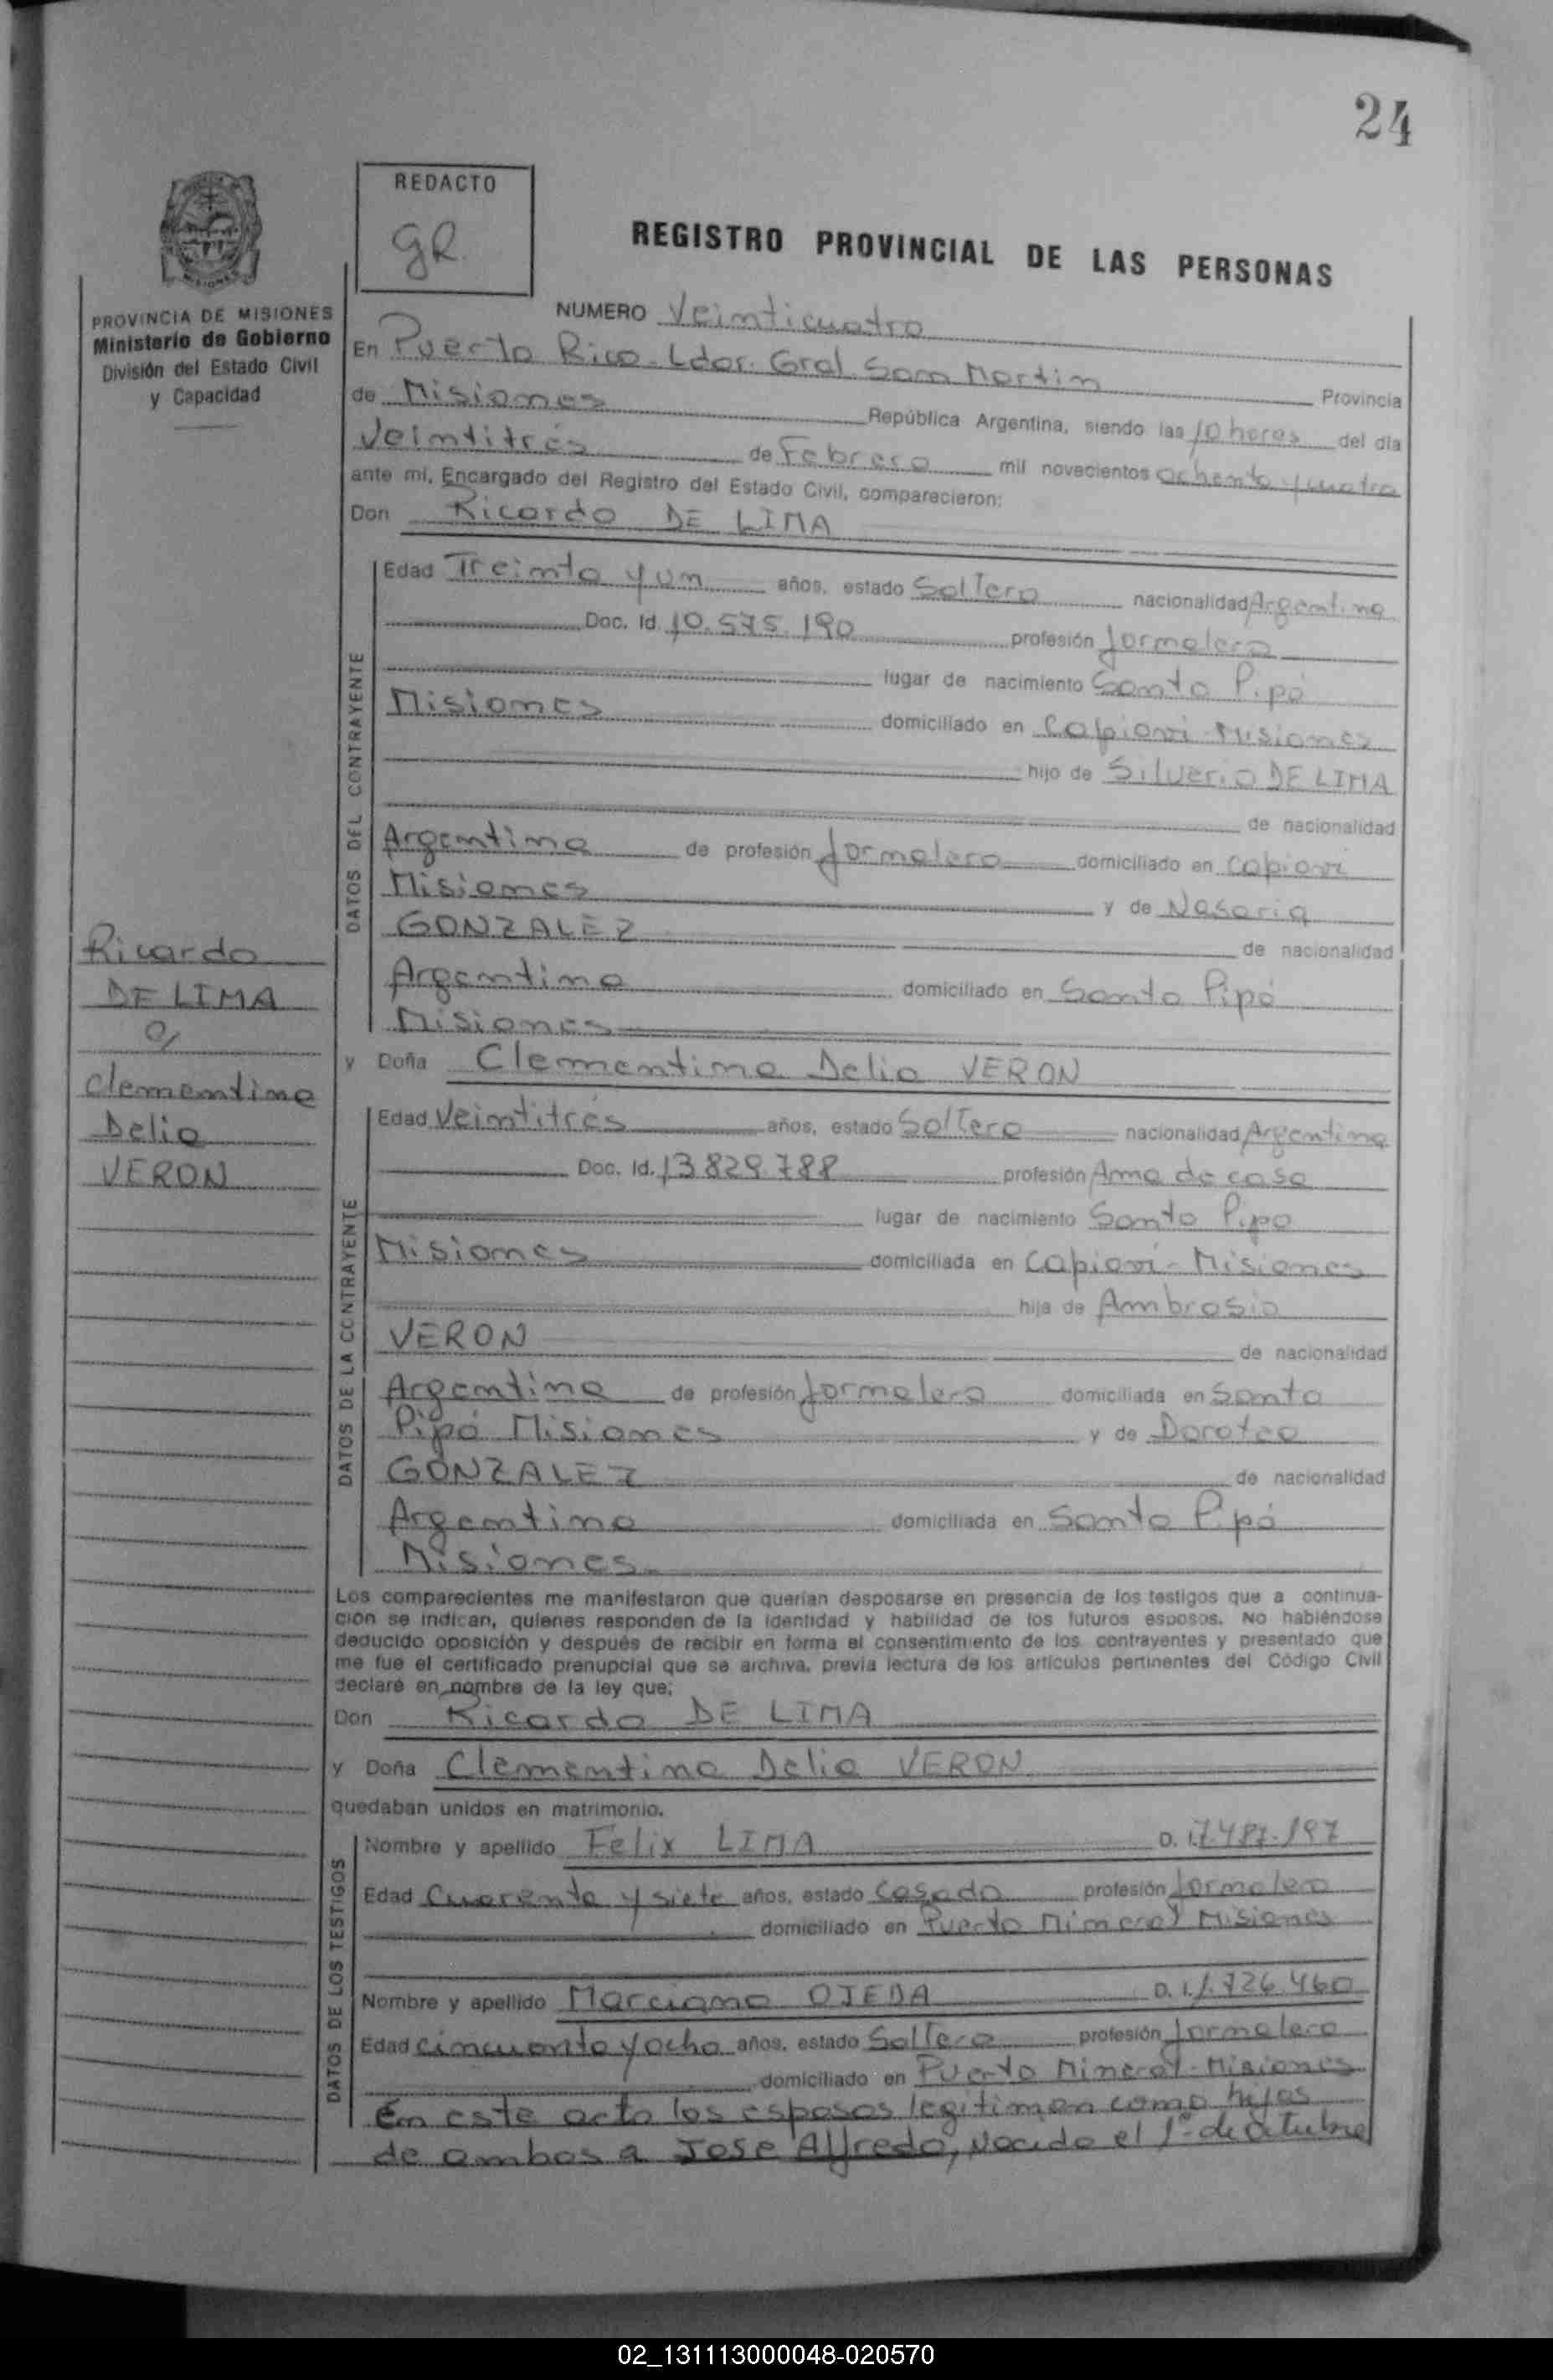 24
REDACTO
gR.
REGISTRO PROVINCIAL DE LAS PERSONAS
PROVINCIA DE MISIONES
Ministerio de Gobierno
División del Estado Civil
y Capacidad
NUMERO Veinticuatro
En Puerto Rico - Ldor. Gral. San Martin Provincia
de Misiones República Argentina, siendo las 10 horas del día
Veintitrés de Febrero mil novecientos ochenta y cuatro
ante mí, Encargado del Registro del Estado Civil, comparecieron:
Don Ricardo DE LIMA
DATOS DEL CONTRAYENTE
Edad Treinta y un años, estado Soltero nacionalidad Argentina
Doc. Id. 10.575.190 profesión Jornalero
lugar de nacimiento Santo Pipó
Misiones domiciliado en Capioví-Misiones
hijo de Silverio DE LIMA
de nacionalidad
Argentina de profesión Jornalero domiciliado en Capioví
Misiones y de Nasaria
GONZALEZ de nacionalidad
Argentina domiciliado en Santo Pipó
Misiones
Ricardo
DE LIMA
c/
Clementina
Delia
VERON
y Doña Clementina Delia VERON
DATOS DE LA CONTRAYENTE
Edad Veintitrés años, estado Soltera nacionalidad Argentina
Doc. Id. 13.829.788 profesión Ama de casa
lugar de nacimiento Santo Pipo
Misiones domiciliada en Capioví-Misiones
hija de Ambrosio
VERON de nacionalidad
Argentina de profesión Jornalero domiciliada en Santo
Pipó Misiones y de Dorotea
GONZALEZ de nacionalidad
Argentina domiciliada en Santo Pipó
Misiones.
Los comparecientes me manifestaron que querían desposarse en presencia de los testigos que a continua-
ción se indican, quienes responden de la identidad y habilidad de los futuros esposos. No habiéndose
deducido oposición y después de recibir en forma el consentimiento de los contrayentes y presentado que
me fue el certificado prenupcial que se archiva, previa lectura de los artículos pertinentes del Código Civil
declaré en nombre de la ley que;
Don Ricardo DE LIMA
y Doña Clementina Delia VERON
quedaban unidos en matrimonio.
DATOS DE LOS TESTIGOS
Nombre y apellido Felix LIMA D. I. 7.487.197
Edad Cuarenta y siete años, estado Casado profesión Jornalero
domiciliado en Puerto Mineral Misiones
Nombre y apellido Marciano OJEDA D. I. 1.726.460
Edad cincuenta y ocho años, estado Soltero profesión Jornalero
domiciliado en Puerto Mineral-Misiones
En este acto los esposos legitiman como hijos
de ambos a Jose Alfredo, Nacido el 1º de Octubre
02_131113000048-020570